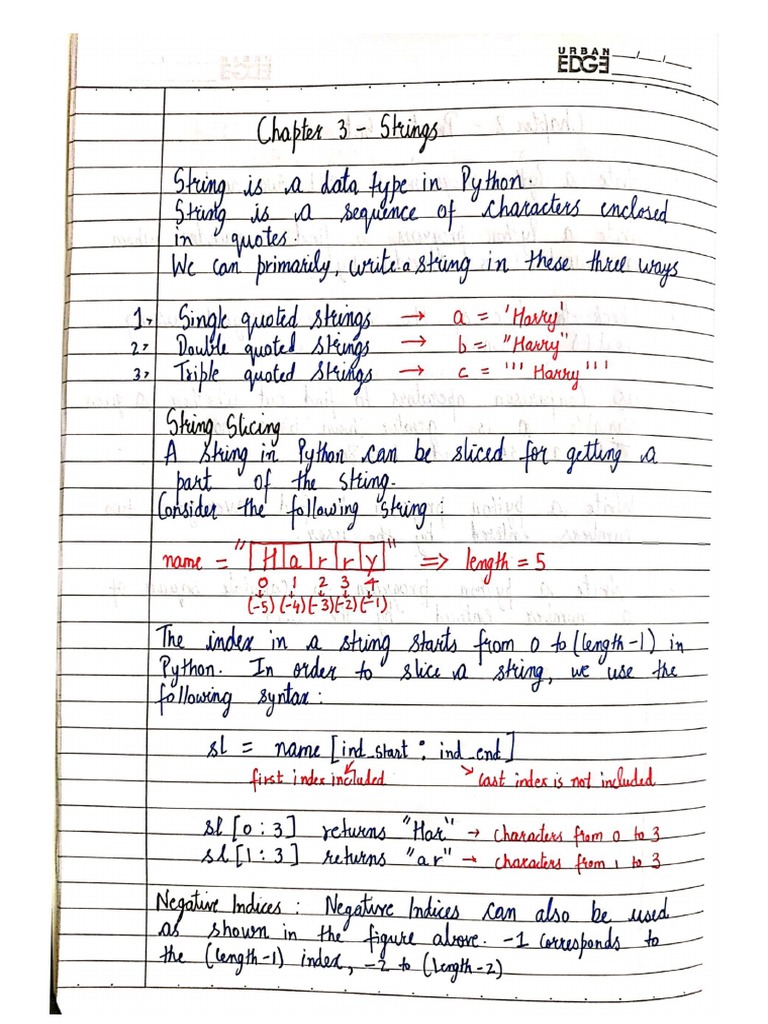 URBAN
EDGE
Chapter 3 - Strings
String is a data type in Python.
String is a sequence of characters enclosed
in quotes.
We can primarily, write a string in these three ways
1, Single quoted strings → a = 'Harry'
2, Double quoted strings → b = "Harry"
3, Triple quoted strings → c = ''' Harry '''
String Slicing
A string in Python can be sliced for getting a
part of the string.
Consider the following string :
name = "Harry" ⇒ length = 5
0 1 2 3 4
(-5) (-4) (-3) (-2) (-1)
The index in a string starts from 0 to (length-1) in
Python. In order to slice a string, we use the
following syntax :
sl = name [ind_start : ind_end]
first index included last index is not included
sl [0 : 3] returns "Har" → characters from 0 to 3
sl [1 : 3] returns "ar" → characters from 1 to 3
Negative Indices : Negative Indices can also be used
as shown in the figure above. -1 corresponds to
the (length-1) index, -2 to (length-2)